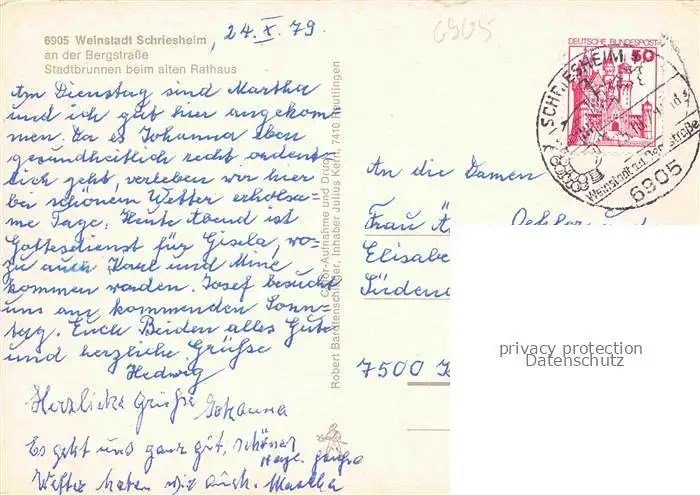 24.X.79
6905
6905 Weinstadt Schriesheim
an der Bergstraße
Stadtbrunnen beim alten Rathaus
Am Dienstag sind Martha
und ich gut hier angekom
men. Da es Johanna eben
gesundheitlich recht ordent
lich geht, verleben wir hier
bei schönem Wetter erholsa=
me Tage. Heute Abend ist
Gottesdienst für Gisela, wo-
zu auch Karl und Mine
kommen werden. Josef besucht
uns am kommenden Sonn-
tag. Euch Beiden alles Gute
und herzliche Grüße
Hedwig
Herzliche Grüße Johanna
Es geht uns ganz gut, schönes
Wetter haben wir auch. Martha
Color-Aufnahme und Druck:
Robert Bardtenschlager, Inhaber Julius Kern, 7410 Reutlingen
DEUTSCHE BUNDESPOST
50
SCHRIESHEIM
Weinstadt a.d. Bergstraße
6905
An die Damen
Frau
Elisabe
Südend
7500
privacy protection
Datenschutz